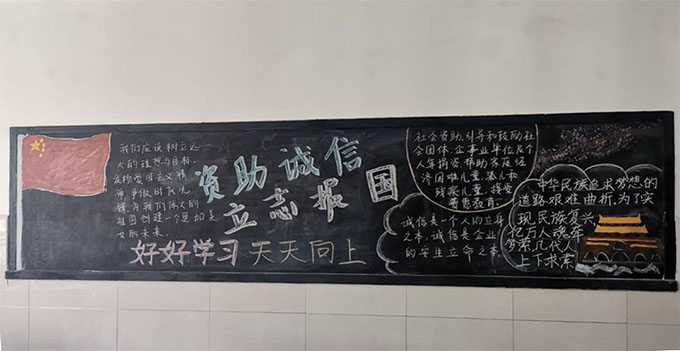 我们应该树立远
大的理想与目标.
发扬爱国主义精
神.争做时代先
锋.为我们伟大的
祖国创建一个更加美
好的未来.
资助诚信
立志报国
好好学习 天天向上
社会资助,引导和鼓励社
会团体.企事业单位及个
人等捐资帮助家庭经
济困难儿童.孤儿和
残疾儿童.接受
普惠教育.
诚信是一个人的立身
之本,诚信是企业
的安生立命之本.
中华民族追求梦想的
道路艰难曲折,为了实
现民族复兴
亿万人魂牵
梦萦,几代人
上下求索